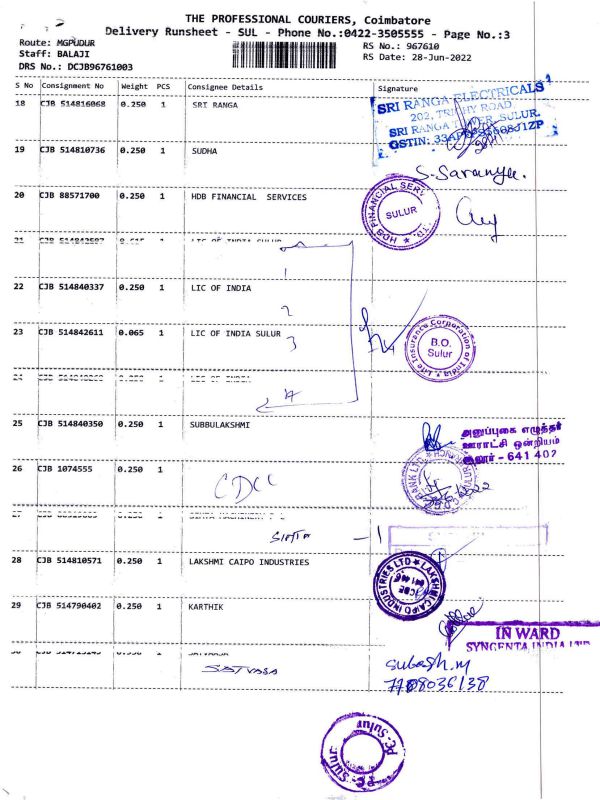 THE PROFESSIONAL COURIERS, Coimbatore
Delivery Runsheet - SUL - Phone No.:0422-3505555 - Page No.:3
Route: MGPUDUR
Staff: BALAJI
DRS No.: DCJB96761003
RS No.: 967610
RS Date: 28-Jun-2022
S No Consignment No Weight PCS Consignee Details Signature
18 CJB 514816068 0.250 1 SRI RANGA
SRI RANGA ELECTRICALS
202, TRICHY ROAD
SULUR.
GSTIN:
19 CJB 514810736 0.250 1 SUDHA
S. Saranya.
20 CJB 88571700 0.250 1 HDB FINANCIAL SERVICES
HDB FINANCIAL SERV LTD.
SULUR
21 LIC OF INDIA SULUR
1
22 CJB 514840337 0.250 1 LIC OF INDIA
2
23 CJB 514842611 0.065 1 LIC OF INDIA SULUR
3
Life Insurance Corporation of India
B.O.
Sulur
24 LIC OF INDIA
4
25 CJB 514840350 0.250 1 SUBBULAKSHMI
அனுப்புகை எழுத்தர்
ஊராட்சி ஒன்றியம்
சூலூர் - 641 402
26 CJB 1074555 0.250 1
CDCC
BANK LTD.
27
- 1
28 CJB 514810571 0.250 1 LAKSHMI CAIPO INDUSTRIES
LAKSHMI CAIPO INDUSTRIES LTD
29 CJB 514790402 0.250 1 KARTHIK
IN WARD
SYNGENTA INDIA LTD
30
SATVASA
Subash.M
PC-Sulur
PC-Sulur